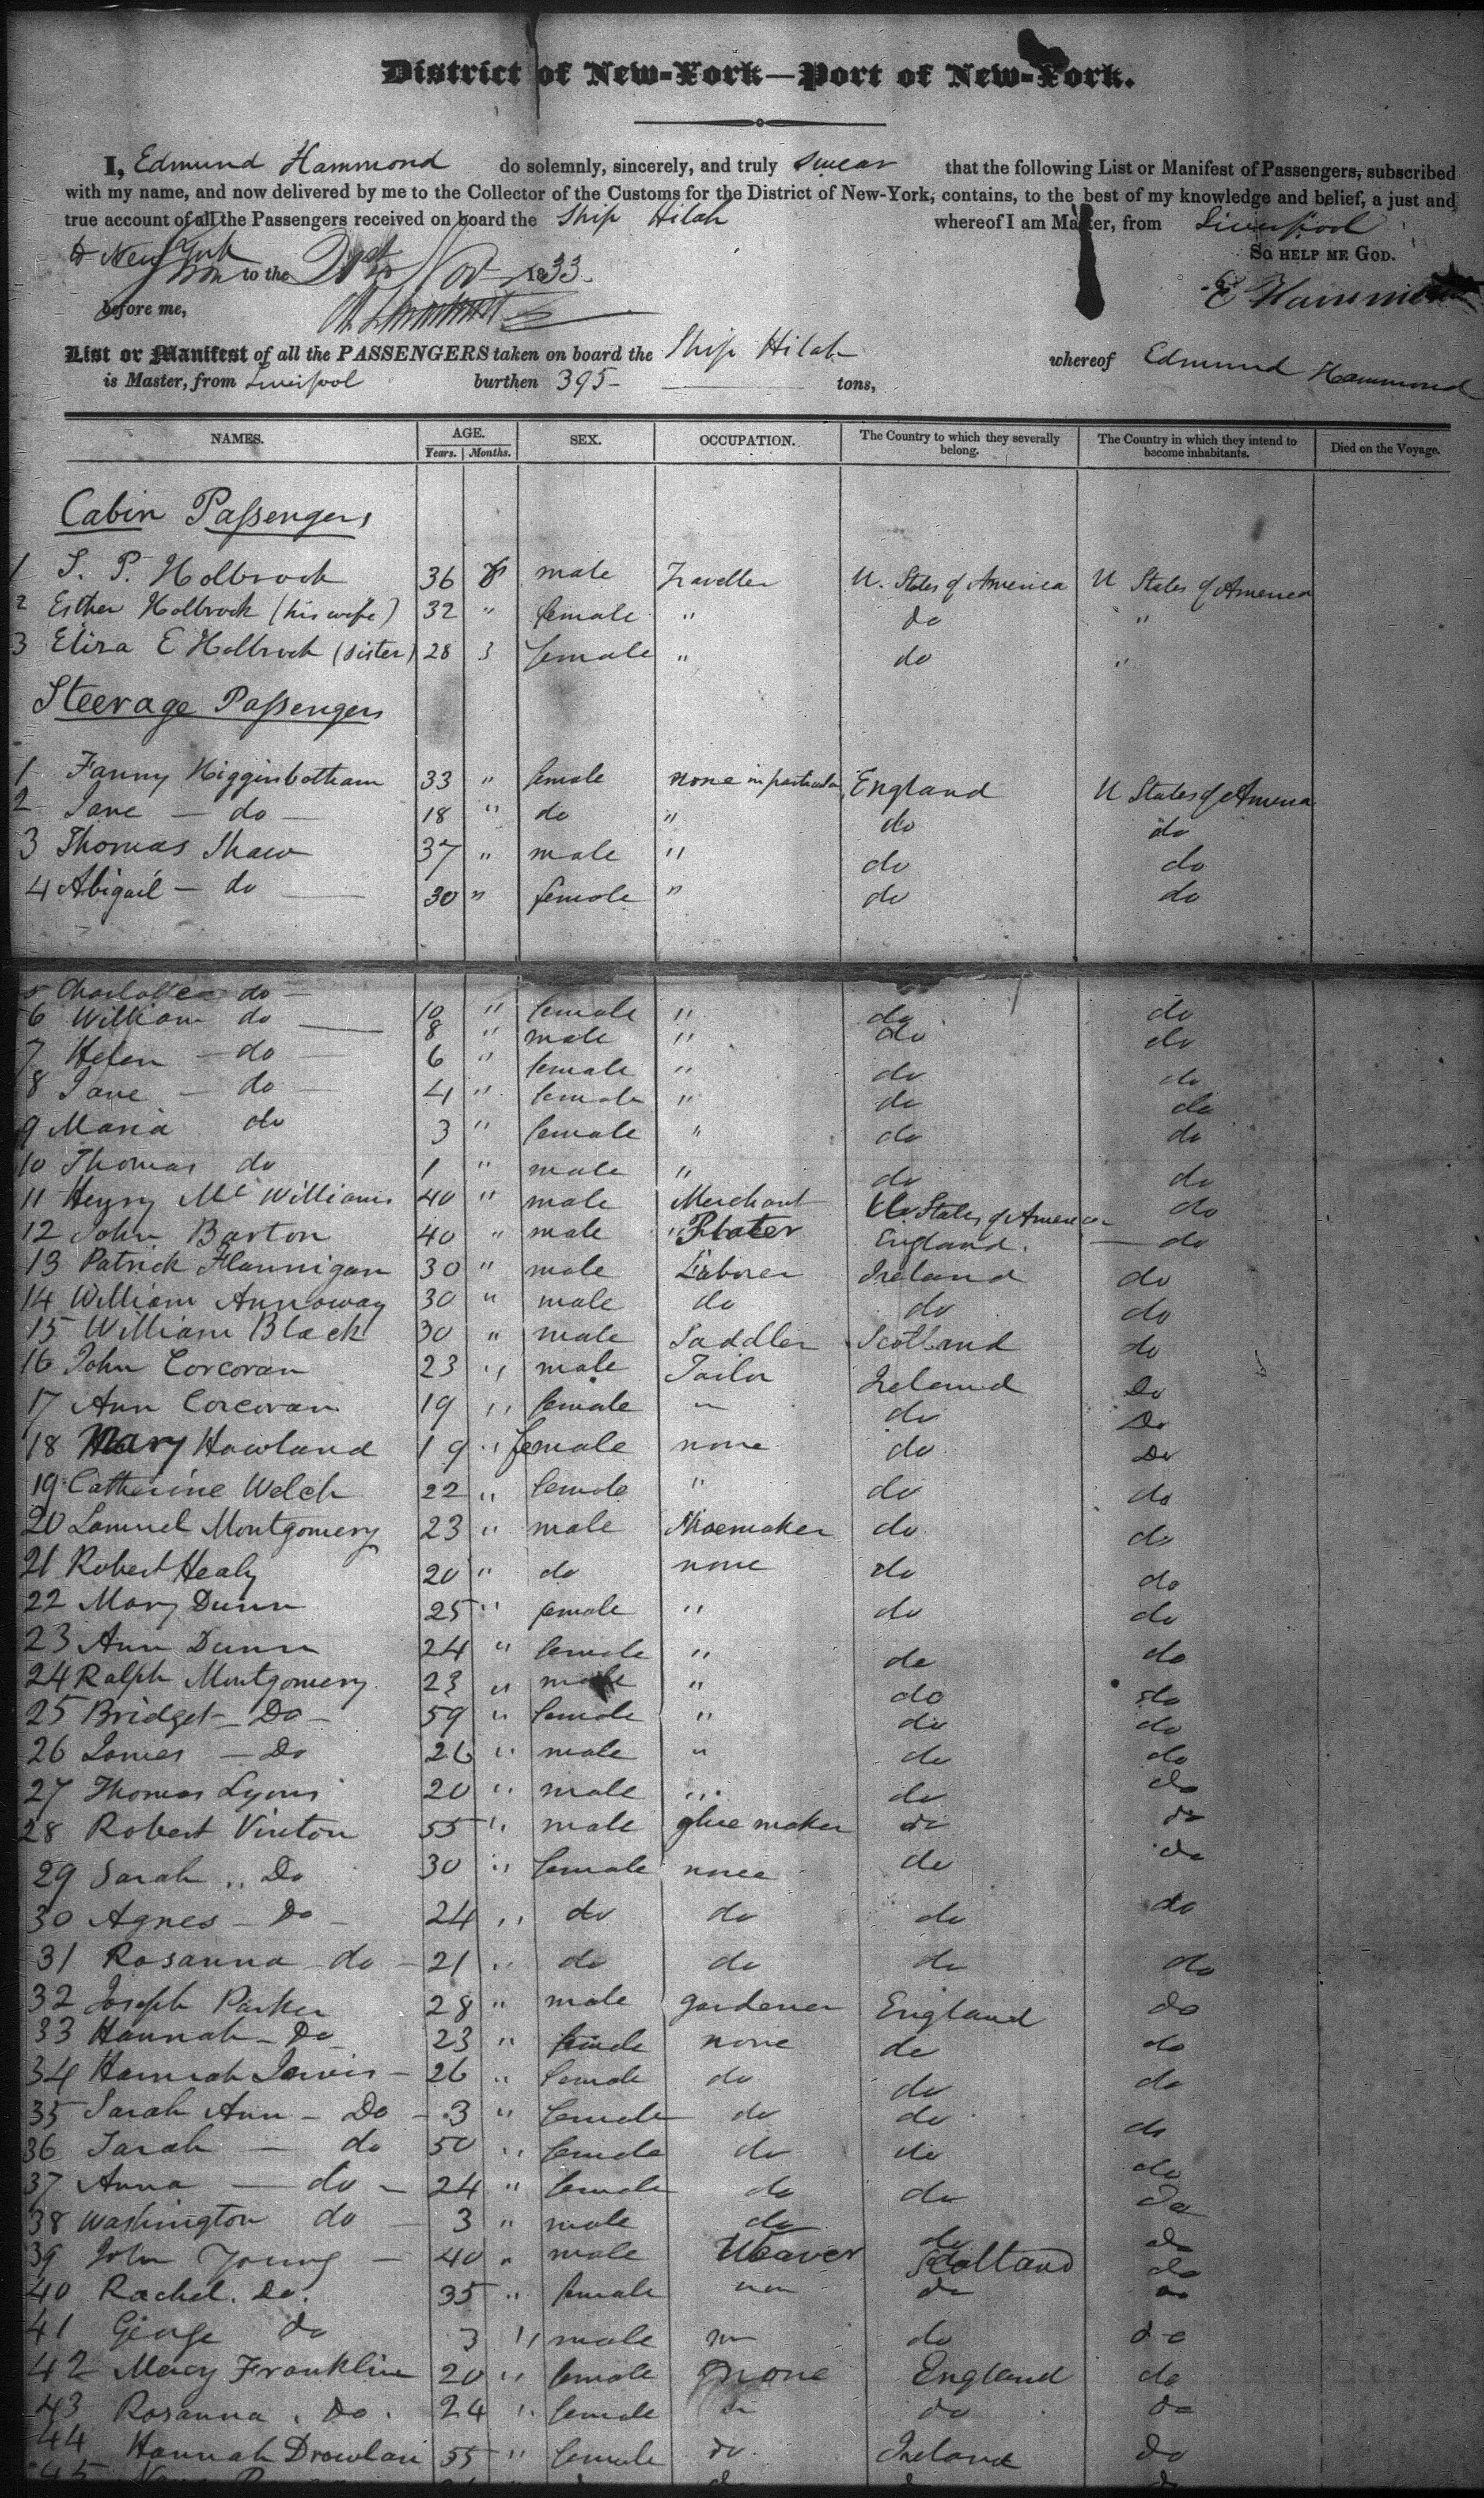 District of New-York—Port of New-York.
I, Edmund Hammond do solemnly, sincerely, and truly swear that the following List or Manifest of Passengers, subscribed
with my name, and now delivered by me to the Collector of the Customs for the District of New-York, contains, to the best of my knowledge and belief, a just and
true account of all the Passengers received on board the Ship Hilah whereof I am Master, from Liverpool
to New York
to the Nov 1833. So HELP ME GOD.
before me, E Hammond
List or Manifest of all the PASSENGERS taken on board the Ship Hilah whereof Edmund Hammond
is Master, from Liverpool burthen 395 tons,
NAMES. AGE. SEX. OCCUPATION. The Country to which they severally belong. The Country in which they intend to become inhabitants. Died on the Voyage.
Years. Months.
Cabin Passengers
1 S. P. Holbrook 36 male Traveller U. States of America U States of America
2 Esther Holbrook (his wife) 32 " female " do "
3 Eliza E Holbrook (sister) 28 3 female " do "
Steerage Passengers
1 Fanny Higginbotham 33 " female none in particular England U States of America
2 Jane - do - 18 " do " do do
3 Thomas Shaw 37 " male " do do
4 Abigail - do 30 " female " do do
5 Charlotte do - 10 " female " do do
6 William do 8 " male " do do
7 Helen - do 6 " female " do do
8 Jane - do - 4 " female " do do
9 Maria do 3 " female " do do
10 Thomas do 1 " male " do do
11 Henry Mc Williams 40 " male Merchant U States of America do
12 John Barton 40 " male " Plater England. do
13 Patrick Flannigan 30 " male Laborer Ireland do
14 William Annoway 30 " male do do do
15 William Black 30 " male Saddler Scotland do
16 John Corcoran 23 " male Tailor Ireland Do
17 Ann Corcoran 19 " female " do Do
18 Mary Howland 19 " female none do Do
19 Catherine Welch 22 " female " do do
20 Samuel Montgomery 23 " male Shoemaker do do
21 Robert Healy 20 " do none do do
22 Mary Dunn 25 " female " do do
23 Ann Dunn 24 " female " do do
24 Ralph Montgomery 23 " male " do do
25 Bridget - Do - 59 " female " do do
26 James - Do 26 " male " do do
27 Thomas Lyons 20 " male " do do
28 Robert Vinton 55 " male glue maker do do
29 Sarah " Do 30 " female none do do
30 Agnes - Do - 24 " do do do do
31 Rosanna do - 21 " do do do do
32 Joseph Parker 28 " male gardener England do
33 Hannah - Do 23 " female none do do
34 Hannah Jarvis - 26 " female do do do
35 Sarah Ann - Do - 3 " female do do do
36 Sarah - do 50 " female do do do
37 Anna - do - 24 " female do do do
38 Washington do - 3 " male do do do
39 John Young - 40 " male Weaver Scotland do
40 Rachel. Do. 35 " female do do
41 George do 3 " male do do
42 Mary Franklin 20 " female none England do
43 Rosanna . Do . 24 " female " do do
44 Hannah 55 " female do. Ireland do
45